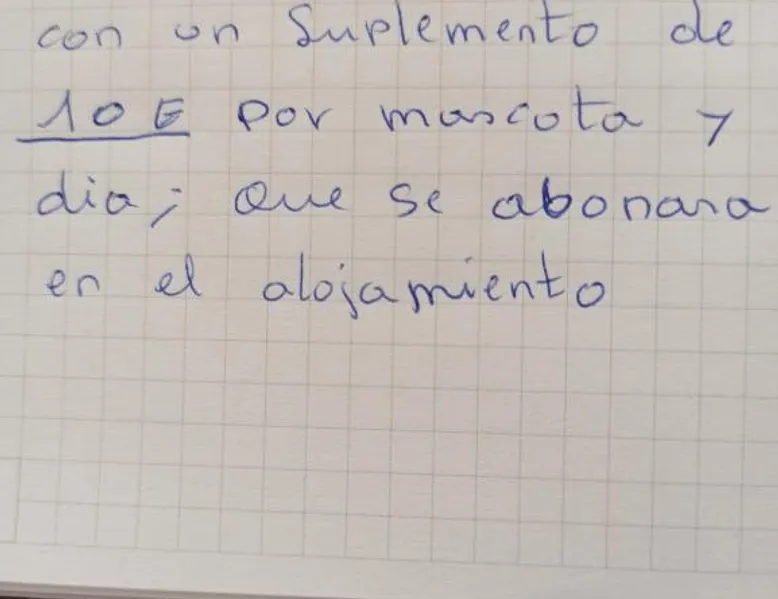 con un Suplemento de
10 € por mascota y
dia; que se abonara
en el alojamiento